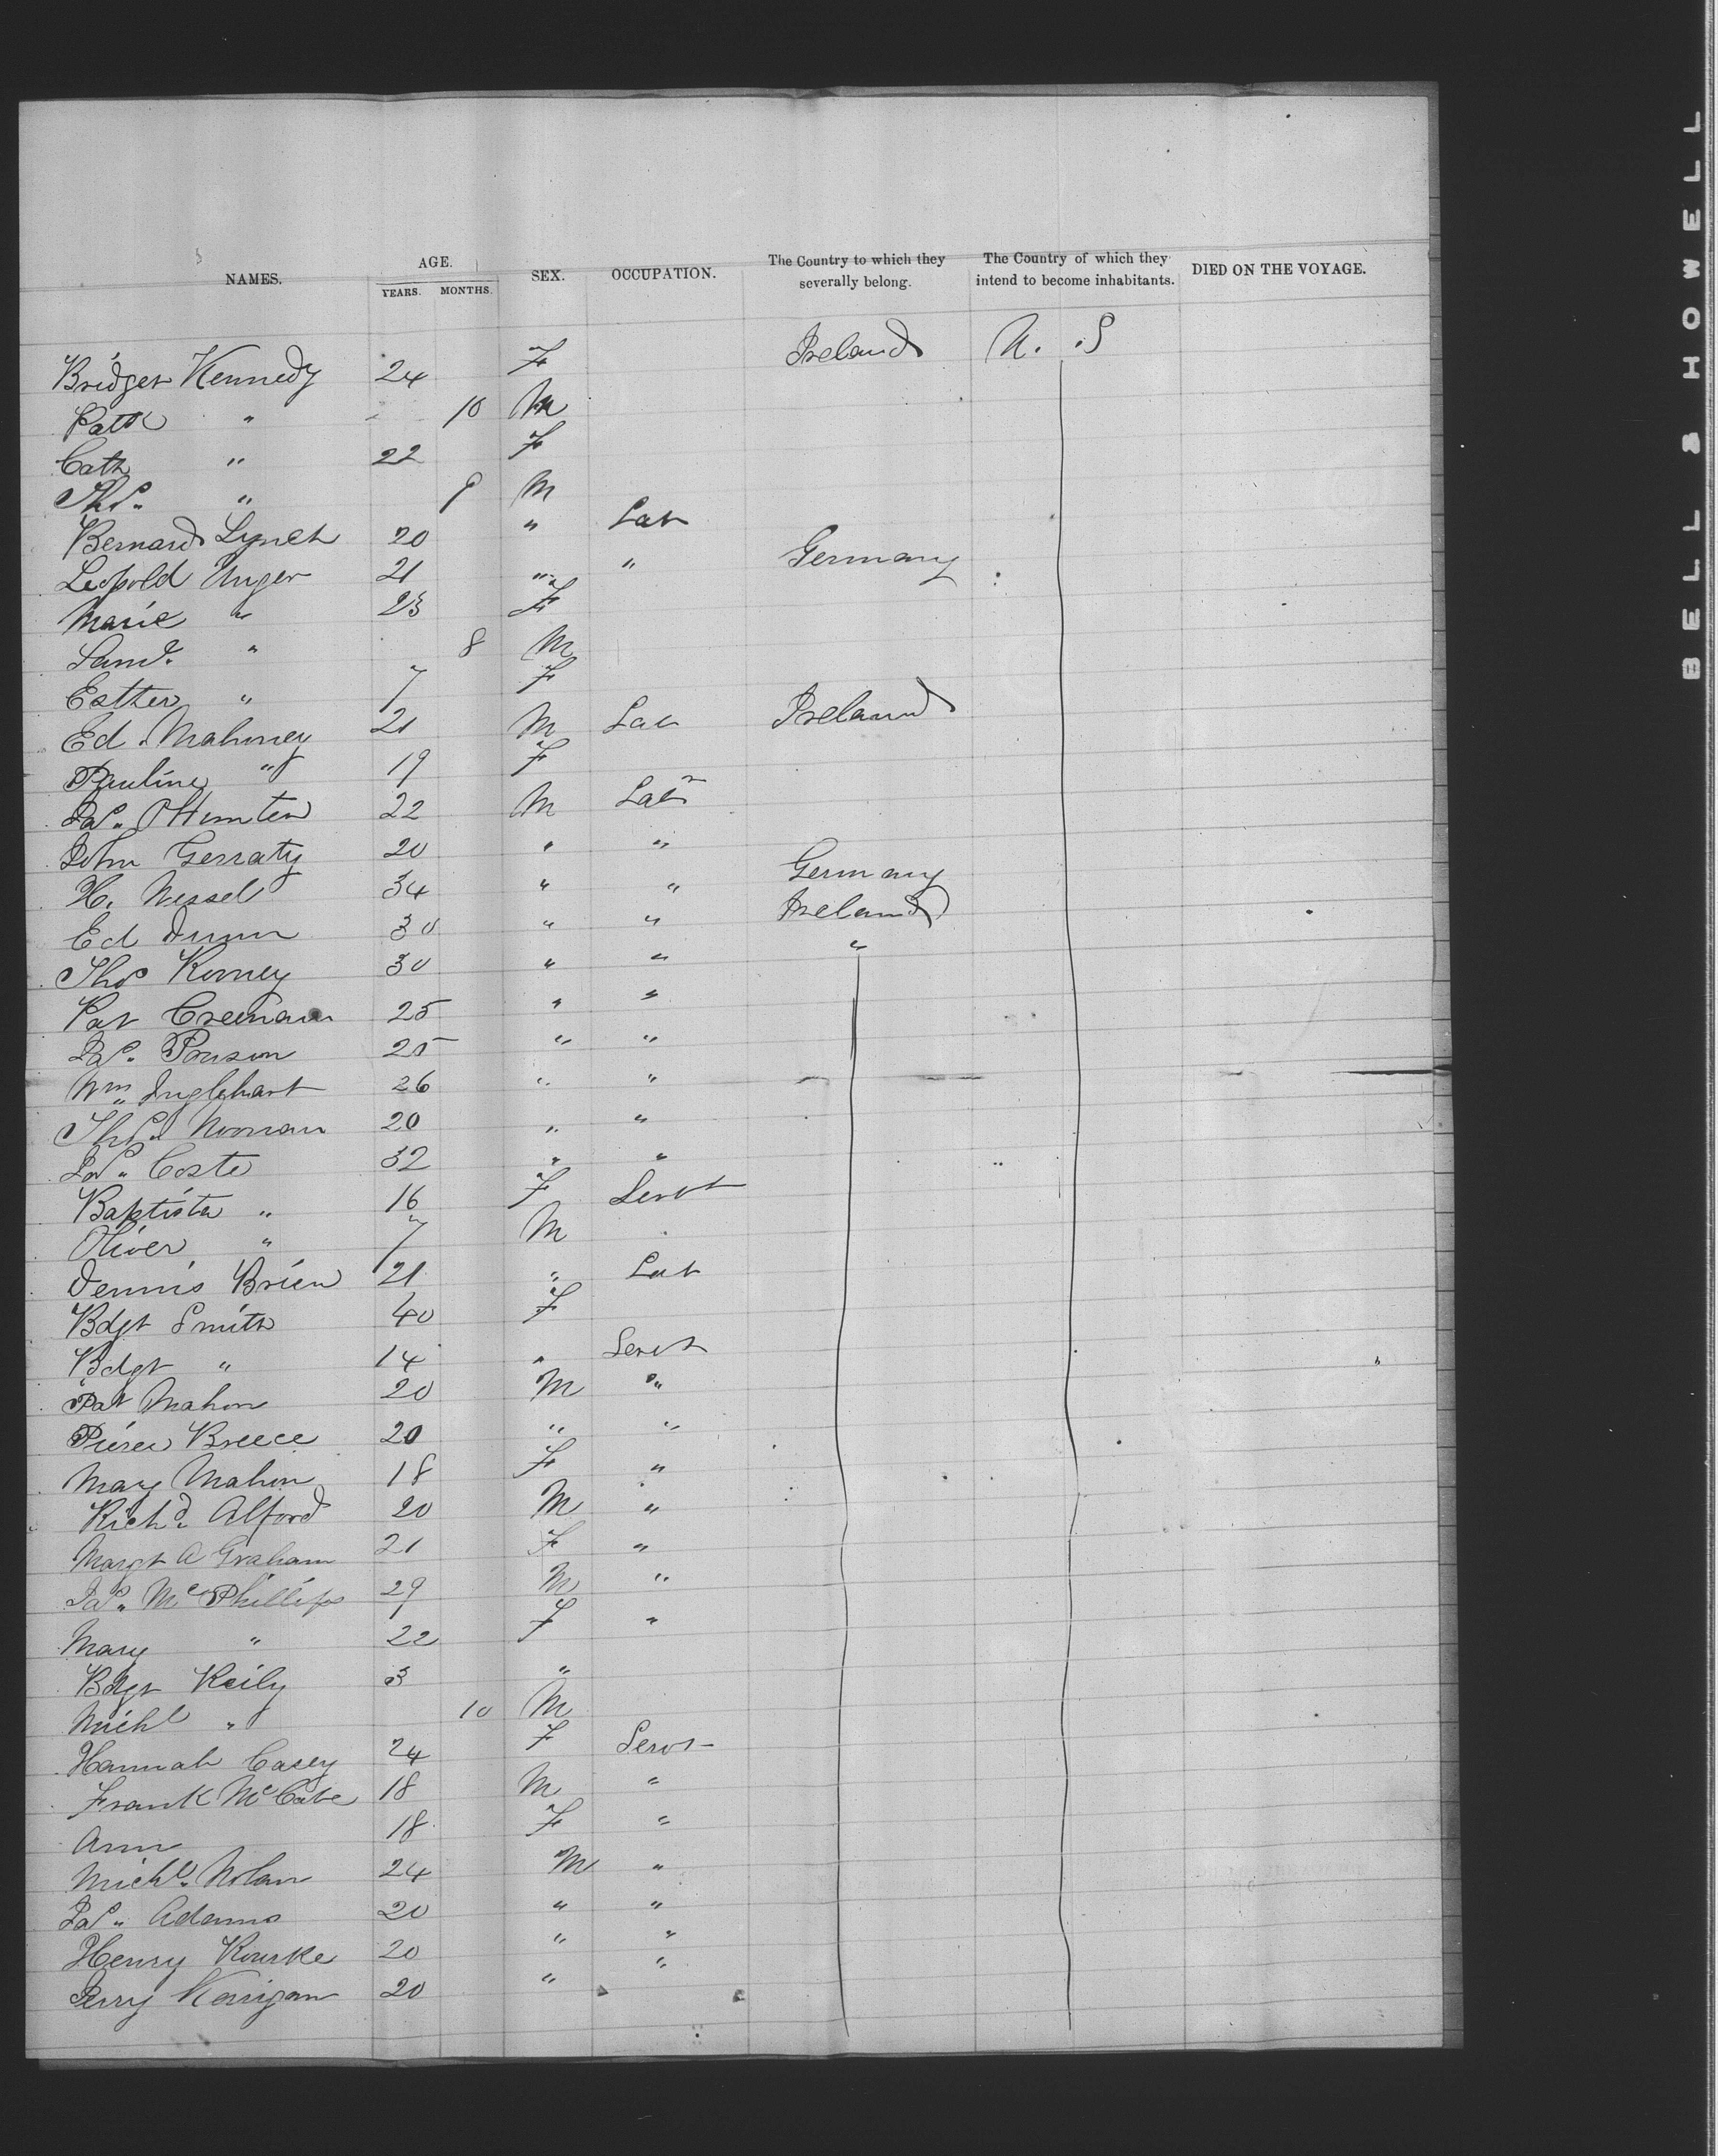 NAMES. AGE. SEX. OCCUPATION. The Country to which they severally belong. The Country of which they intend to become inhabitants. DIED ON THE VOYAGE.
YEARS. MONTHS.
Bridget Kennedy 24 F Ireland U. S
Patk " 10 M
Cath " 22 F
Thos. " 9 M
Bernard Lynch 20 " Lab
Leopold Unger 21 " " Germany
Marie " 23 F
Saml. " 8 M
Esther " 7 F
Ed. Mahoney 21 M Lab Ireland
Pauline " 19 F
Jas. OHunter 22 M Labr
John Gerraty 20 " "
H. Wessel 34 " " Germany
Ed Dunn 30 " " Ireland
Thos Romey 30 " " "
Pat Creenan 25 " "
Jas. 25 " "
Wm Inglehart 26 " "
Thos. Noonan 20 " "
Jas. Coste 32 " "
Baptista " 16 F Servt
Oliver " 7 M
Dennis Brien 21 " Lab
Bdgt Smith 40 F
Bdgt " 14 " Servt
Pat Mahon 20 M "
Pierce Breece 20 " "
Mary Mahon 18 F "
Richd. Alford 20 M "
Margt A Graham 21 F "
Jas. McPhillips 29 M "
Mary " 22 F "
Bdgt Reily 3 "
Michl " 10 M
Hannah Casey 24 F Servt
Frank McCabe 18 M "
Ann 18 F "
Michl. Nolan 24 M "
Jas. Adams 20 " "
Henry Rourke 20 " "
Perry Kerrigan 20 " "
BELL & HOWELL